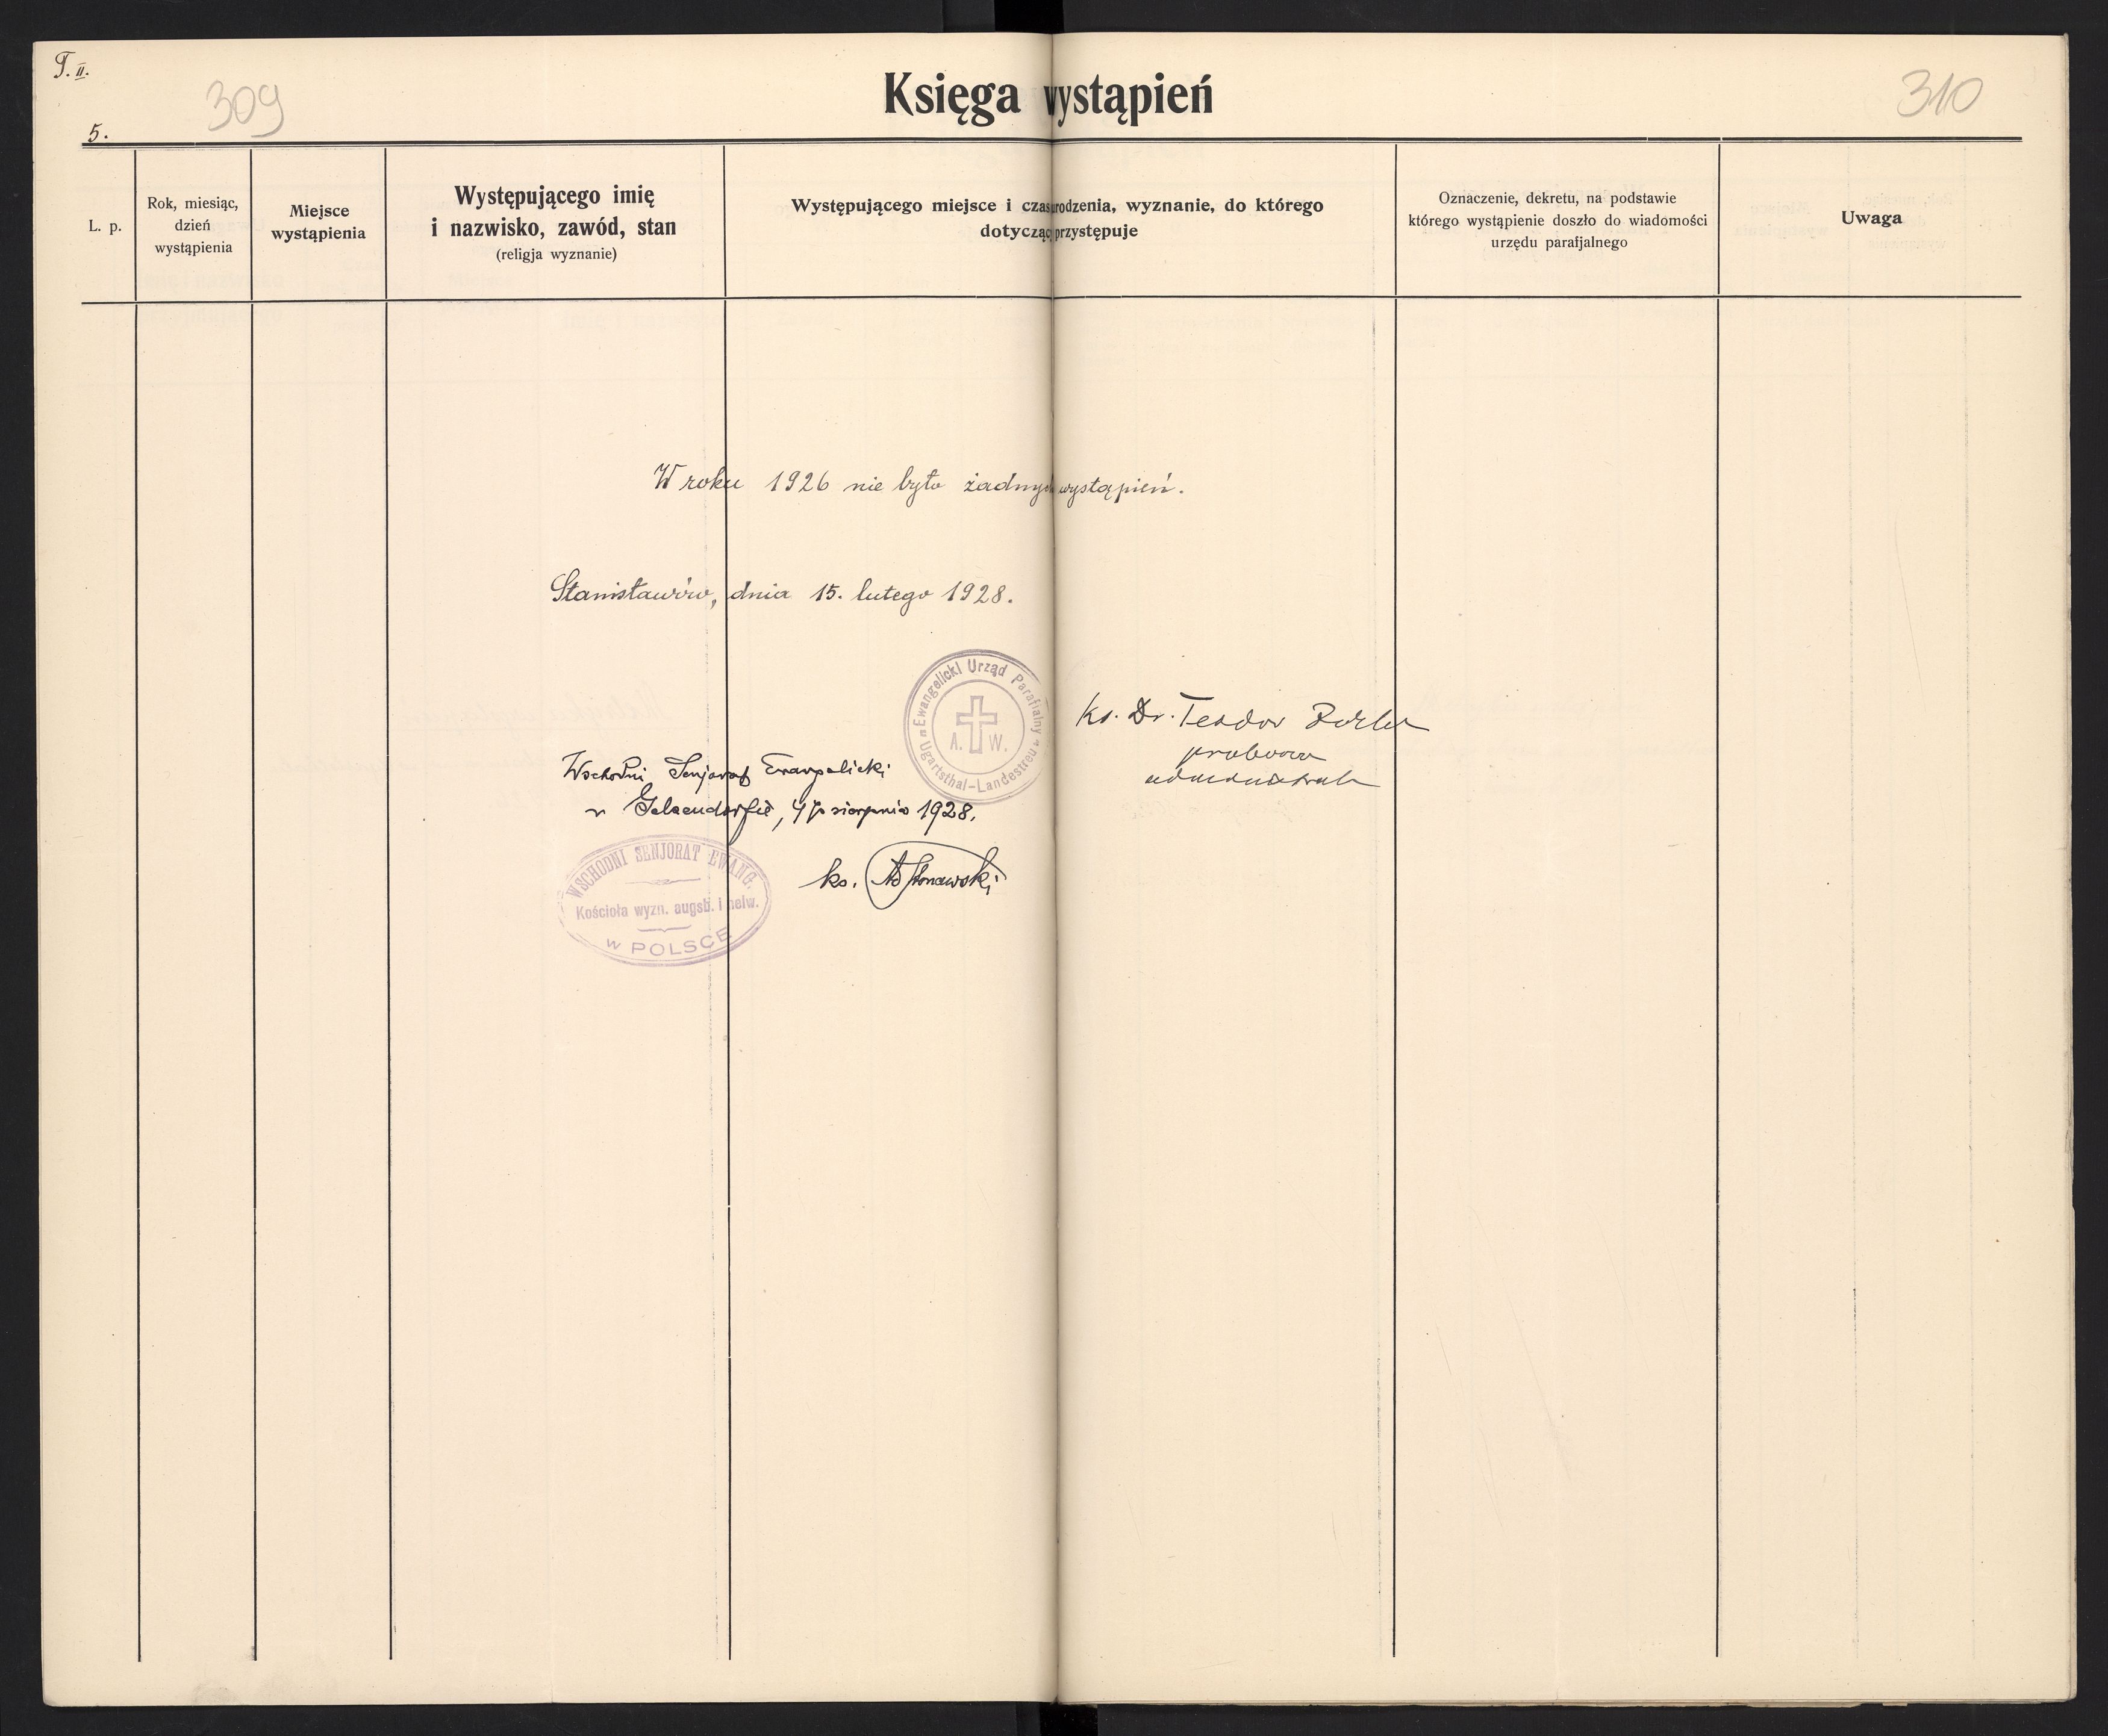 T. II.
309
310
5.
Księga wystąpień
L. p.
Rok, miesiąc,
dzień
wystąpienia
Miejsce
wystąpienia
Występującego imię
i nazwisko, zawód, stan
(religja wyznanie)
Występującego miejsce i czas urodzenia, wyznanie, do którego
dotycząc przystępuje
Oznaczenie, dekretu, na podstawie
którego wystąpienie doszło do wiadomości
urzędu parafjalnego
Uwaga
W roku 1926 nie było żadnych wystąpień.
Stanisławów, dnia 15. lutego 1928.
Ewangelicki Urząd Parafialny w
Ugartsthal-Landestreu
A. W.
Ks. Dr. Teodor
Wschodni Senjorat Ewangelicki
w Gelsendorfie, sierpnia 1928.
ks.
WSCHODNI SENJORAT EWANG.
Kościoła wyzn. augsb. i helw.
w POLSCE